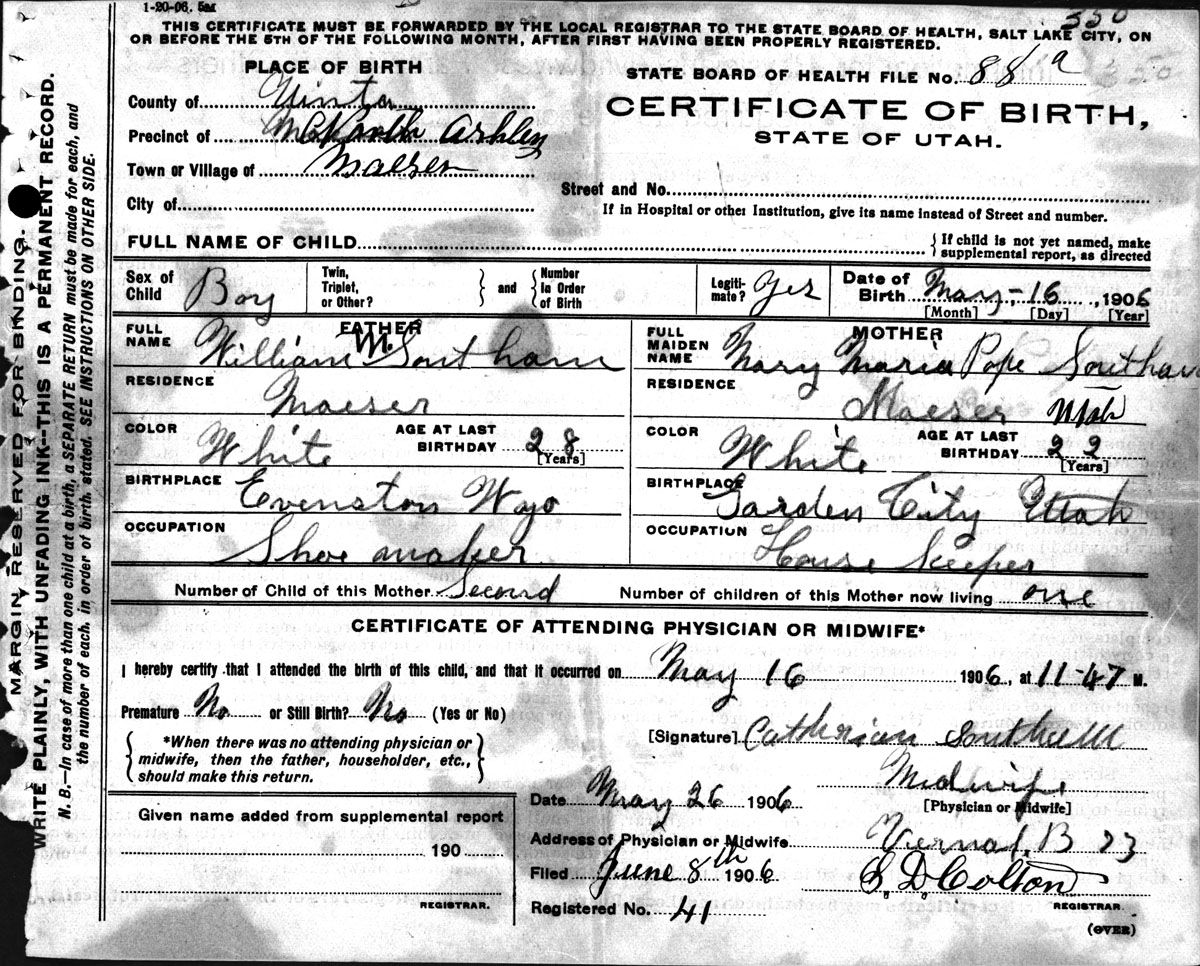 1-20-06. 5m
550
THIS CERTIFICATE MUST BE FORWARDED BY THE LOCAL REGISTRAR TO THE STATE BOARD OF HEALTH, SALT LAKE CITY, ON
OR BEFORE THE 5TH OF THE FOLLOWING MONTH, AFTER FIRST HAVING BEEN PROPERLY REGISTERED.
PLACE OF BIRTH
STATE BOARD OF HEALTH FILE No. 88 a
350
County of Uinta
CERTIFICATE OF BIRTH,
STATE OF UTAH.
Precinct of Ashley
Town or Village of Maeser
Street and No.
City of
If in Hospital or other Institution, give its name instead of Street and number.
FULL NAME OF CHILD
{ If child is not yet named, make
supplemental report, as directed
Sex of Child Boy
Twin, Triplet, or Other? } and { Number In Order of Birth
Legiti-mate? Yes
Date of Birth May-16, 1906
[Month] [Day] [Year]
FATHER
FULL NAME William M. Southam
RESIDENCE Maeser
COLOR White
AGE AT LAST BIRTHDAY 28 [Years]
BIRTHPLACE Evenston Wyo
OCCUPATION Shoe maker
MOTHER
FULL MAIDEN NAME Mary Maria Pope Southam
RESIDENCE Maeser Utah
COLOR White
AGE AT LAST BIRTHDAY 22 [Years]
BIRTHPLACE Garden City Utah
OCCUPATION House Keeper
Number of Child of this Mother Second
Number of children of this Mother now living one
CERTIFICATE OF ATTENDING PHYSICIAN OR MIDWIFE*
I hereby certify that I attended the birth of this child, and that it occurred on May 16 1906, at 11-47 M.
Premature No or Still Birth? No (Yes or No)
{ *When there was no attending physician or
midwife, then the father, householder, etc.,
should make this return. }
[Signature] Catherian
Midwife
[Physician or Midwife]
Date May 26 1906
Given name added from supplemental report
190
REGISTRAR.
Address of Physician or Midwife Vernal, B 23
Filed June 8th 1906
S. D. Colton
REGISTRAR.
Registered No. 41
(OVER)
MARGIN RESERVED FOR BINDING.
WRITE PLAINLY, WITH UNFADING INK--THIS IS A PERMANENT RECORD.
N. B.—In case of more than one child at a birth, a SEPARATE RETURN must be made for each, and
the number of each, in order of birth, stated. SEE INSTRUCTIONS ON OTHER SIDE.